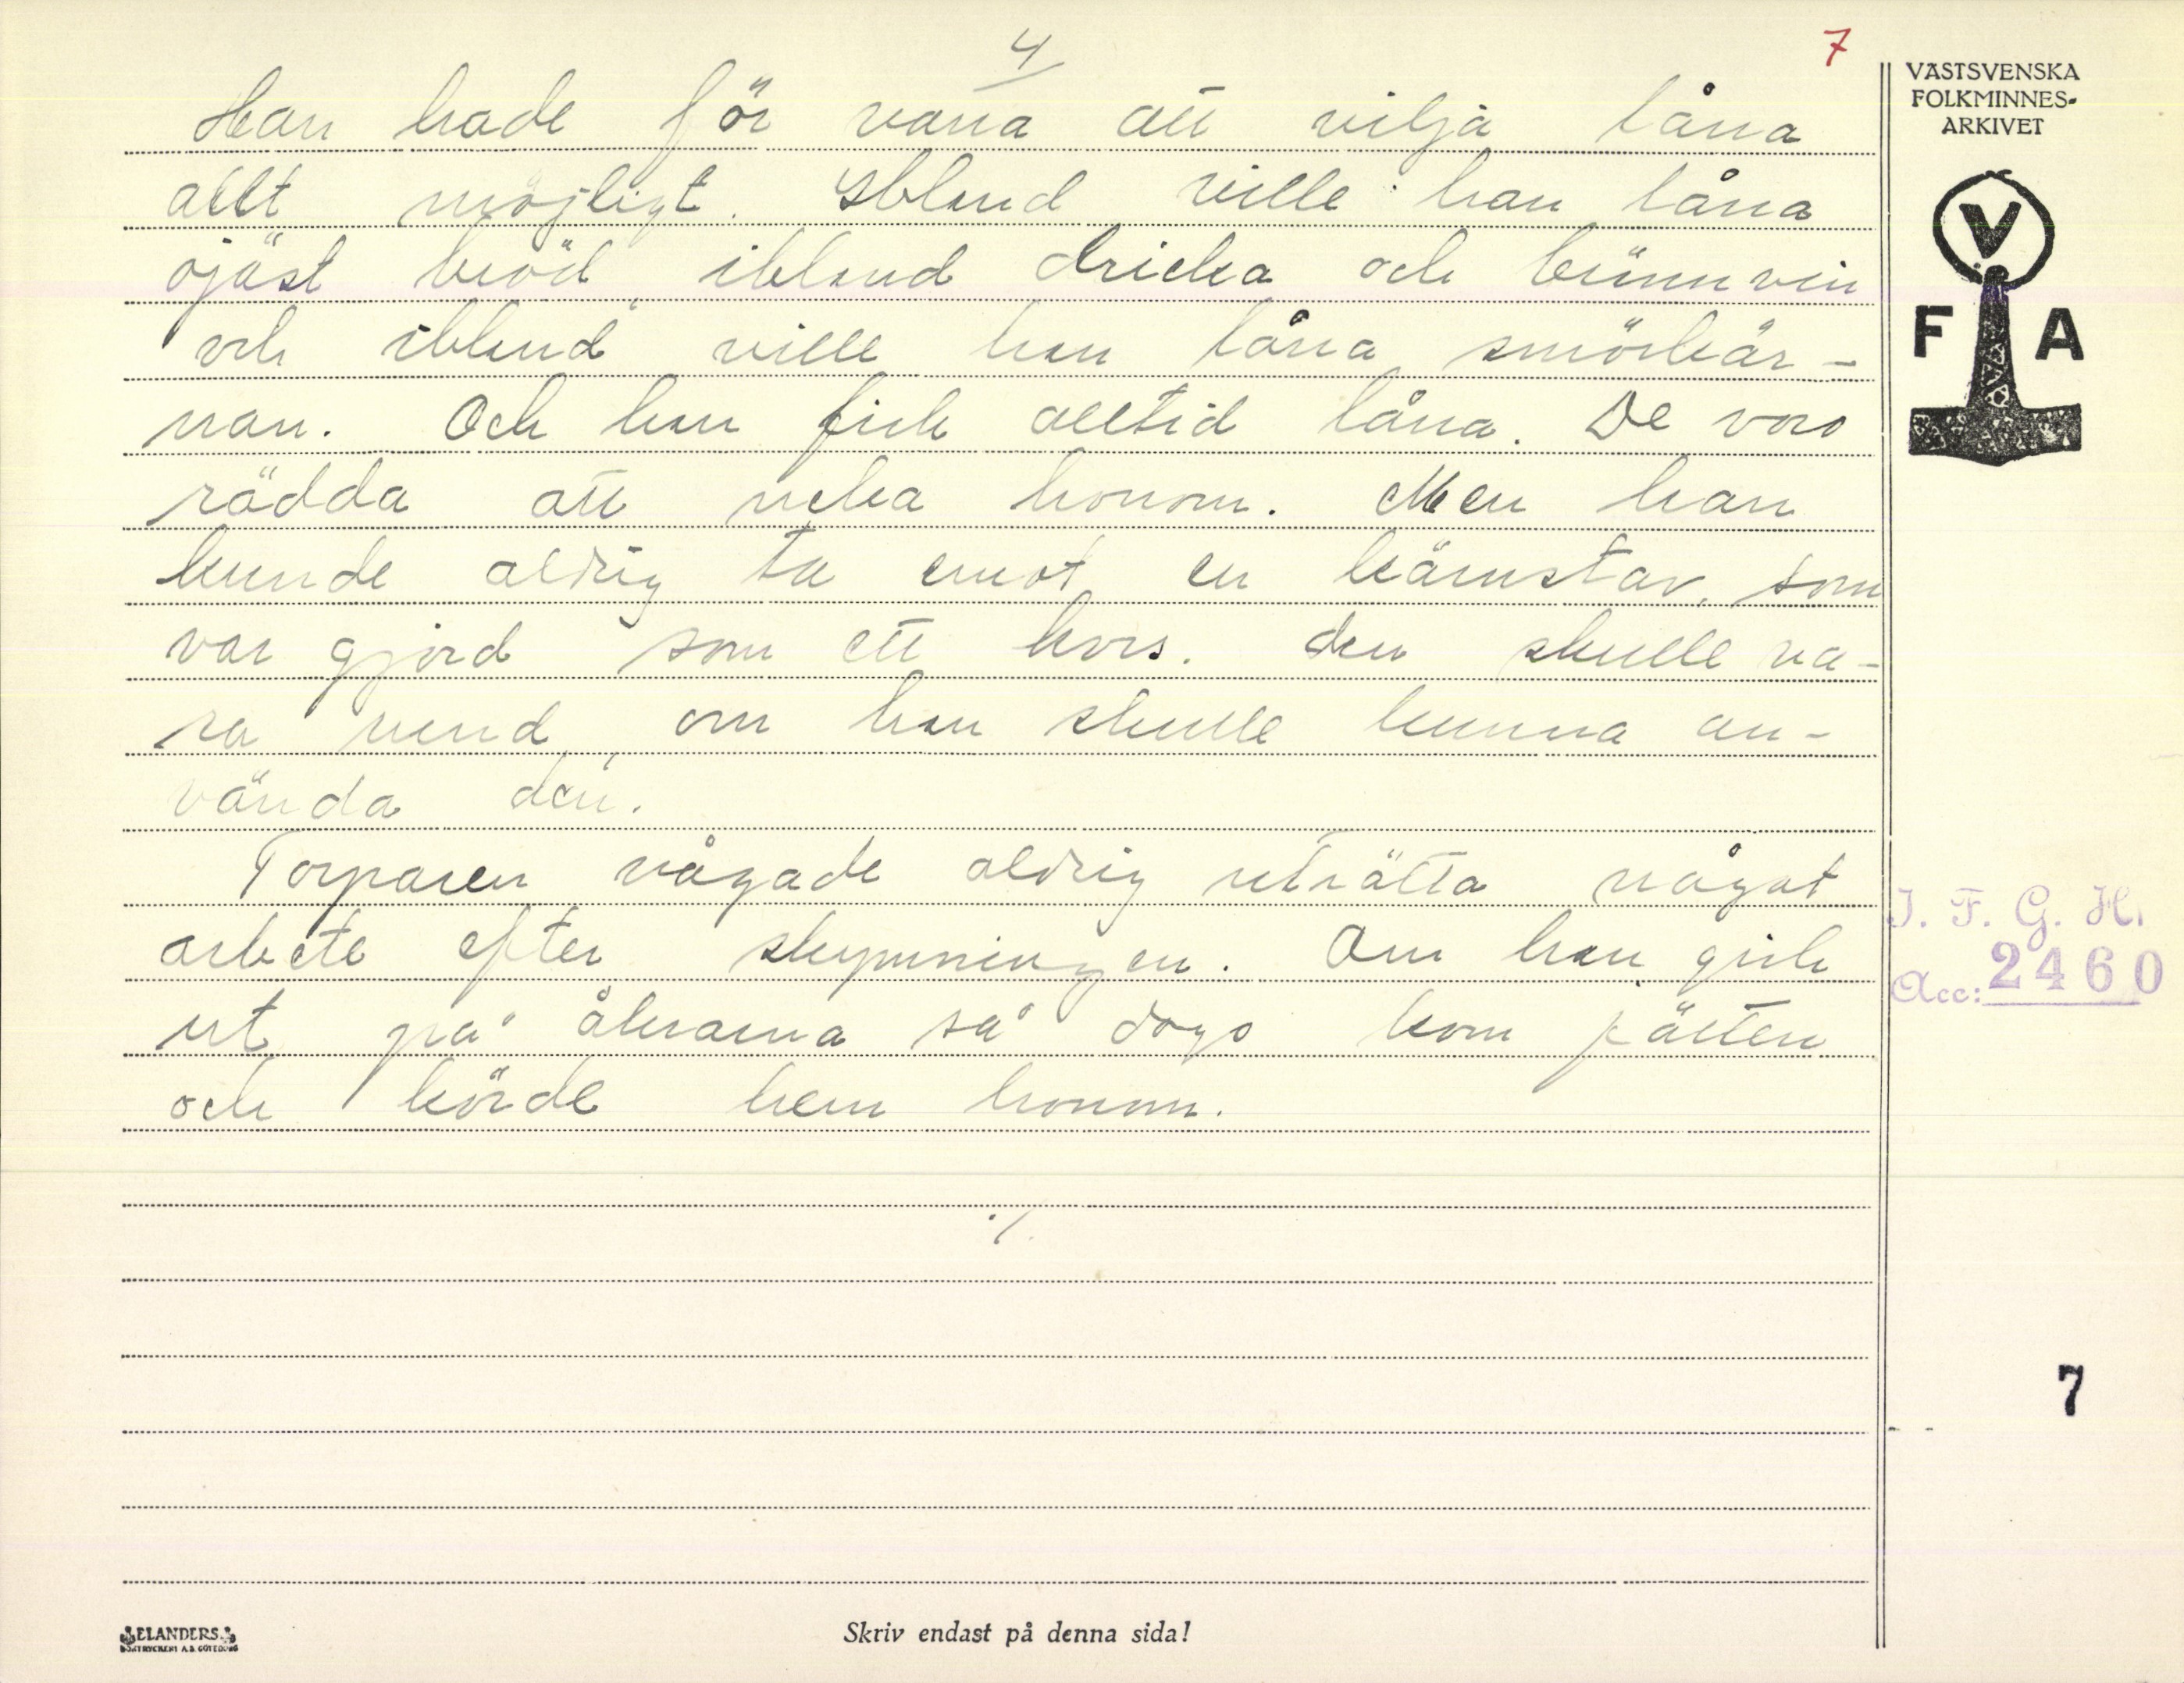 4
7
Han hade för vana att vilja låna
allt möjligt. Ibland ville han låna
ojäst bröd, ibland dricka och brännvin
och ibland ville han låna smörkär-
nan. Och han fick alltid låna. De voro
rädda att neka honom. Men han
kunde aldrig ta emot en kärnstav, som
var gjord som ett kors. Den skulle va-
ra rund, om han skulle kunna an-
vända den.
Torparen vågade aldrig uträtta något
arbete efter skymningen. Om han gick
ut på åkrarna så dags kom jätten
och körde hem honom.
./.
VÄSTSVENSKA
FOLKMINNES-
ARKIVET
V
F A
I. F. G. H.
Acc: 2460
7
ELANDERS
BOKTRYCKERI A.B. GÖTEBORG
Skriv endast på denna sida!